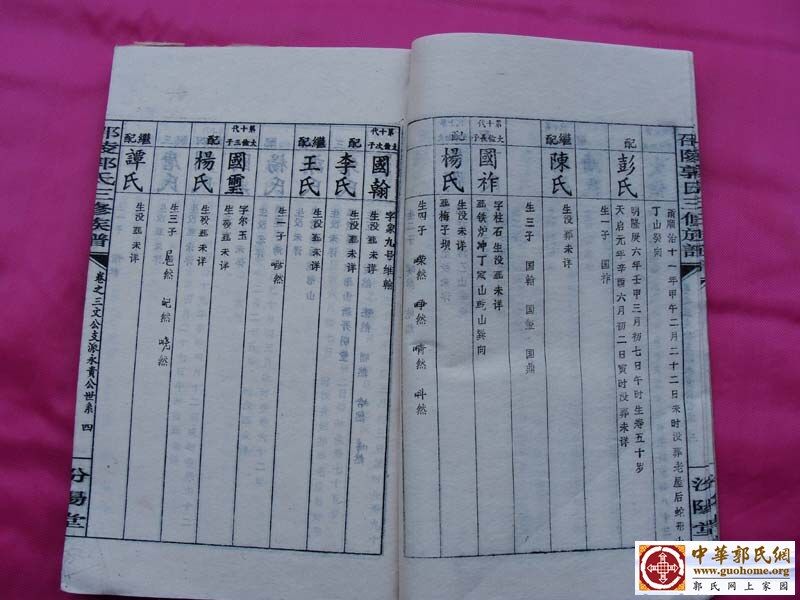 清順治十一年甲午二月二十二日未时没葬老屋后蛇形山
丁山癸向
配 彭氏
明隆庚六年壬甲三月初七日午时生寿五十岁
天启元年辛酉六月初二日寅时没葬未详
生一子 国祚
继配 陳氏
生没葬未详
生三子 国翰 国玺 国鼎
第十代 大倫長子 國祚
字柱石生没葬未详
葬铁炉冲丁家山乾山巽向
配 楊氏
生没未详
葬梅子坝
生四子
第十代 大倫次子 國翰
字泉九号维翰
生没葬未详
配 李氏
生没葬未详
继配 王氏
生没葬未详
生一子
第十代 大倫三子 國璽
字尔玉
生没葬未详
配 楊氏
生没葬未详
繼配 譚氏
生没葬未详
生三子
邵陵郭氏三修族譜
卷之三文公支派永貴公世系 四
汾陽堂
中華郭氏網
www.guohome.org
郭氏网上家园